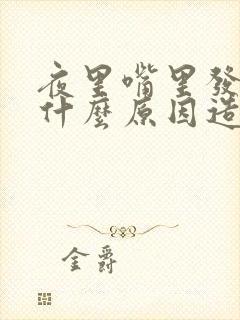 夜里嘴里發
什麼原因造
金爵